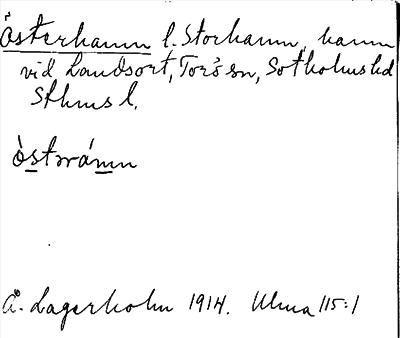 Österhamn l. Storhamn, hamn
vid Landsort, Torö sn, Sotholms hd
Sthms l.
òstərámn
Å. Lagerholm 1914. Ulma 115:1